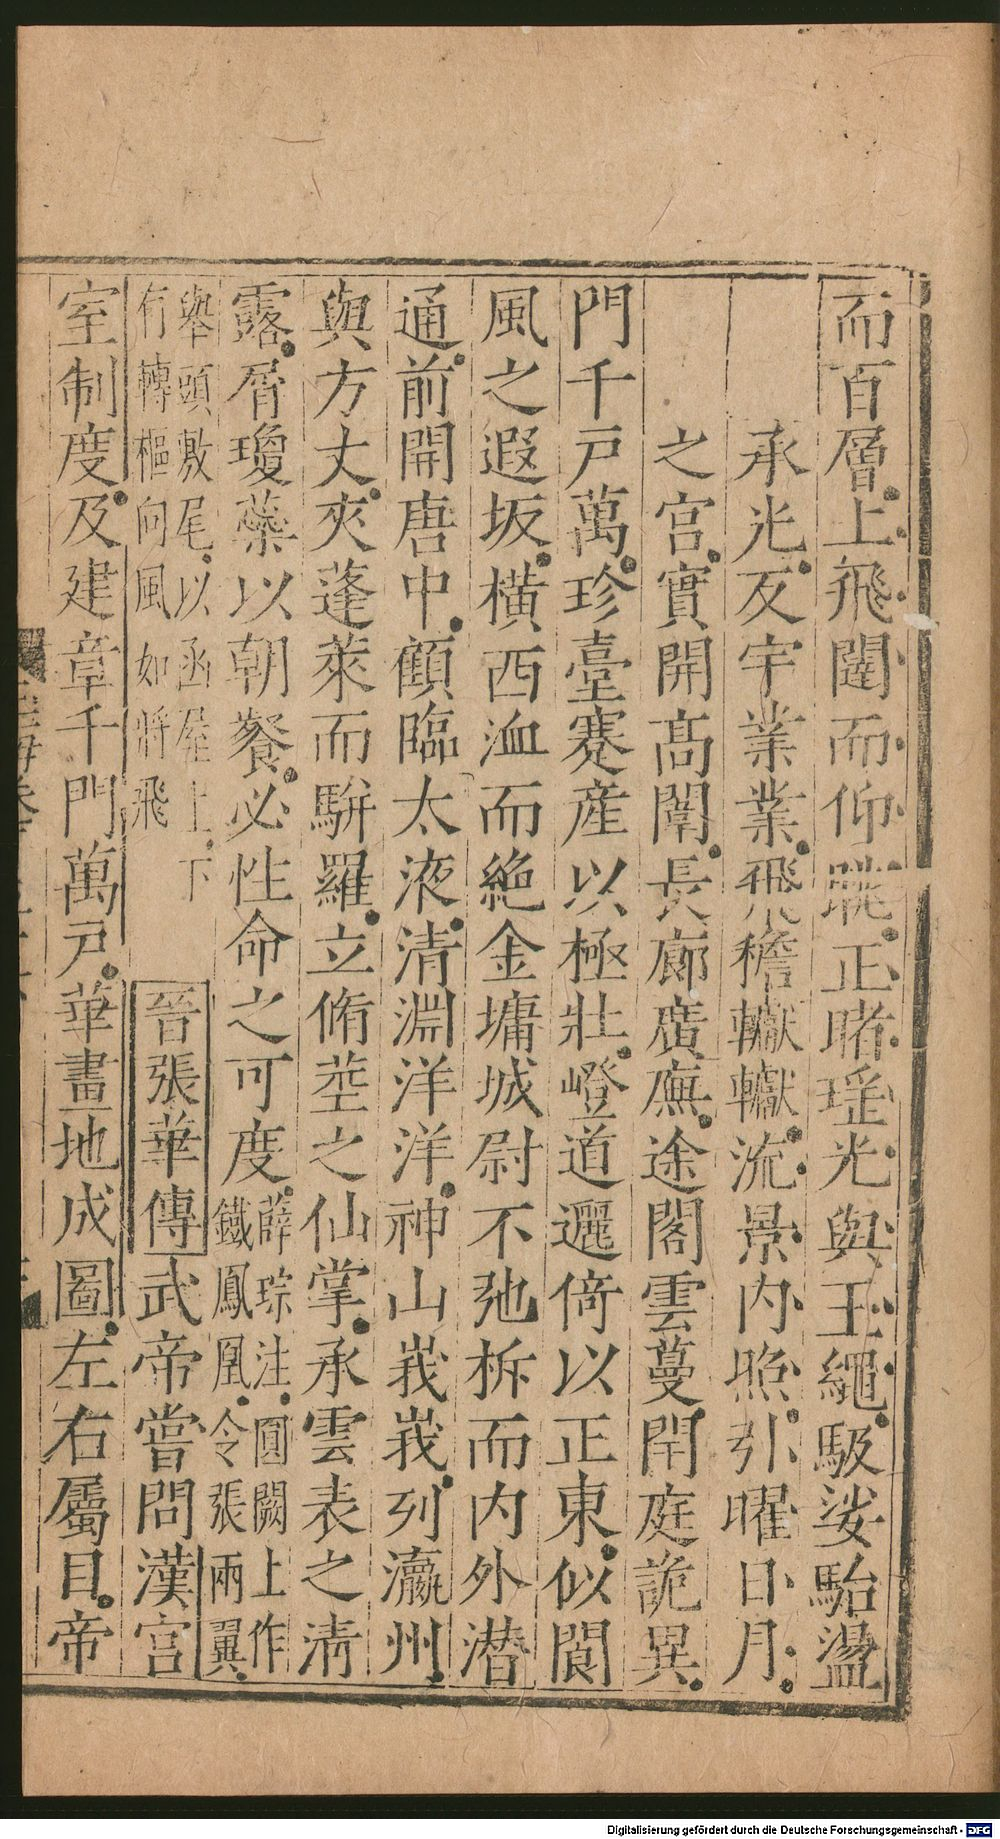 而百層上飛闥而仰眺正睹瑶光與玉繩馺娑駘盪
承光反宇業業飛檐轍轍流景内照引曜日月
之宫實開高闈長廊廣廡途閣雲蔓閈庭詭異
門千戸萬珍臺蹇産以極壯嶝道邐倚以正東似閬
風之遐坂橫西洫而絶金墉城尉不弛柝而内外潜
通前開唐中顧臨太液清淵洋洋神山峩峩列瀛州
與方丈夾蓬萊而駢羅立脩莖之仙掌承雲表之清
露屑瓊蘂以朝餐必性命之可度薛琮注圓闕上作
鐵鳳凰令張兩翼
舉頭敷尾以函屋上下
有轉樞向風如將飛
晉張華傳武帝嘗問漢宫
室制度及建章千門萬戸華畫地成圖左右屬目帝
Digitalisierung gefördert durch die Deutsche Forschungsgemeinschaft - DFG